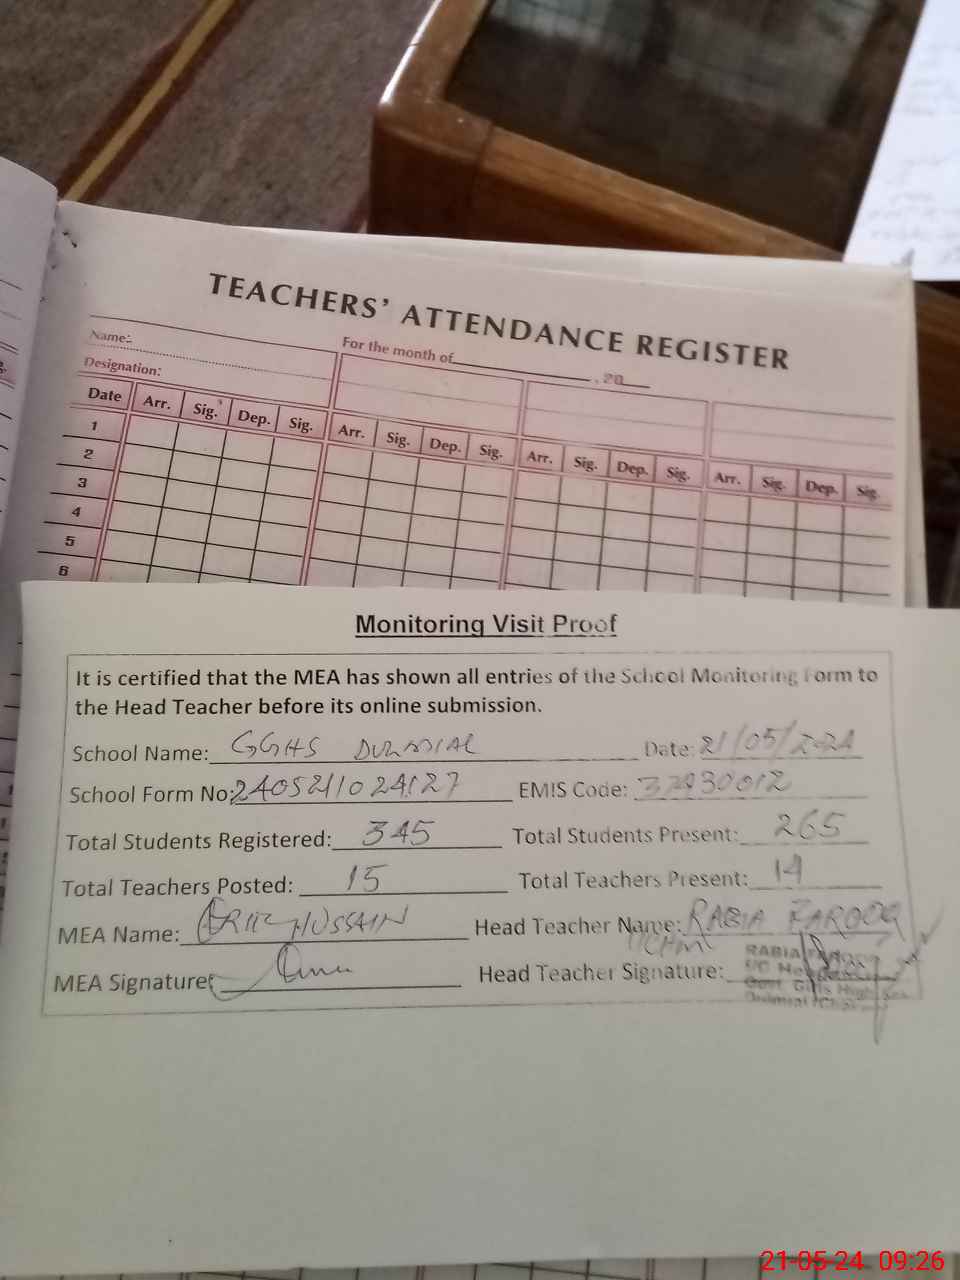 TEACHERS' ATTENDANCE REGISTER
Name:
For the month of , 20
Designation:
Date Arr. Sig. Dep. Sig. Arr. Sig. Dep. Sig. Arr. Sig. Dep. Sig. Arr. Sig. Dep. Sig.
1
2
3
4
5
6
Monitoring Visit Proof
It is certified that the MEA has shown all entries of the School Monitoring Form to
the Head Teacher before its online submission.
School Name: GGHS DULMIAL Date: 21/05/2024
School Form No: 2405211024127 EMIS Code:
Total Students Registered: 345 Total Students Present: 265
Total Teachers Posted: 15 Total Teachers Present: 14
MEA Name: HUSSAIN Head Teacher Name: RABIA FAROOQ
MEA Signature: Head Teacher Signature:
RABIA
I/C
Govt. Girls High
Dulmial
21-05-24 09:26